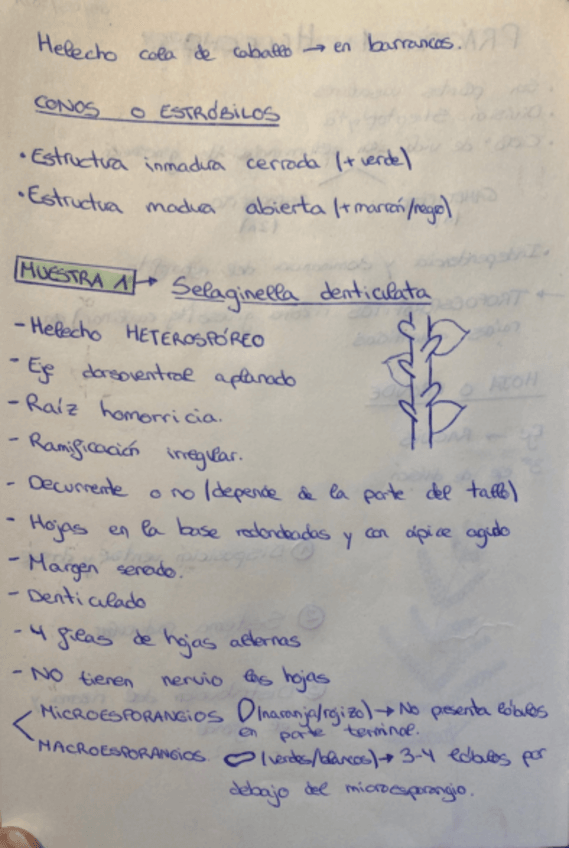 Helecho cola de caballo → en barrancos.
CONOS O ESTRÓBILOS
• Estructura inmadura cerrada (+ verde)
• Estructura madura abierta (+ marrón/negro)
MUESTRA 1 → Selaginella denticulata
- Helecho HETEROSPÓREO
- Eje dorsoventral aplanado
- Raíz homorricia.
- Ramificación irregular.
- Decurrente o no (depende de la parte del tallo)
- Hojas en la base redondeadas y con ápice agudo
- Margen serrado.
- Denticulado
- 4 filas de hojas alternas
- NO tienen nervio las hojas
MICROESPORANGIOS (naranja/rojizo) → No presenta lóbulos
en parte terminal.
MACROESPORANGIOS (verdes/blancos) → 3-4 lóbulos por
debajo del microesporangio.